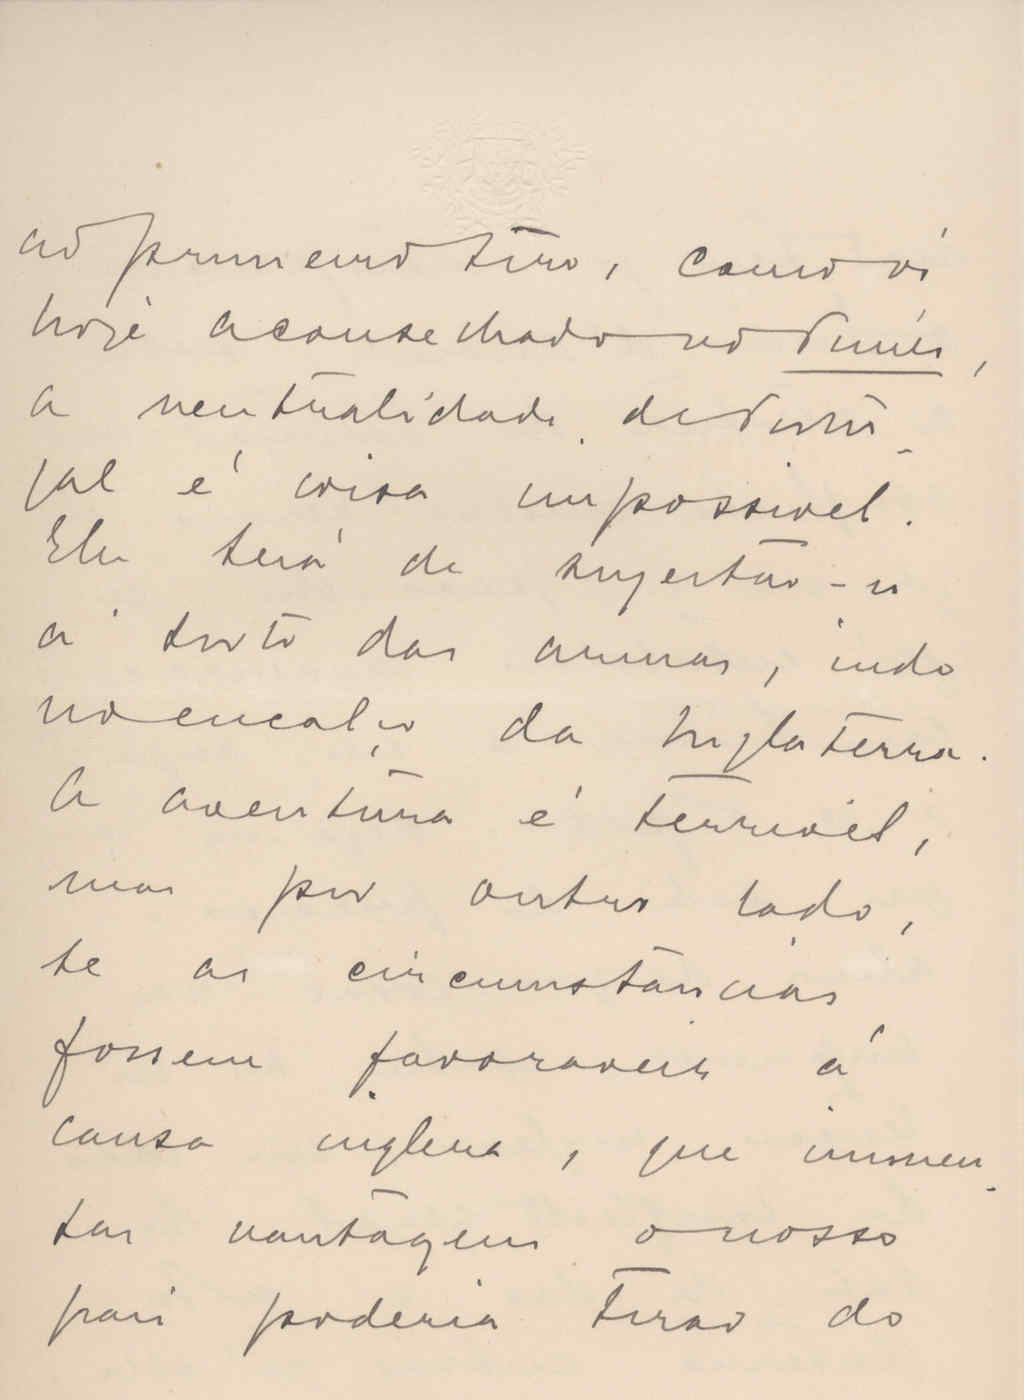 ao primeiro tiro, como vi
hoje aconselhado no Times,
a neutralidade de Portu-
gal é coisa impossivel.
Elle terá de sugeitar-se
á sorte das armas, indo
no encalço da Inglaterra.
A aventura é terrivel,
mas por outro lado,
se as circumstancias
fossem favoraveis á
causa ingleza, que immen-
sas vantagens o nosso
pais poderia tirar do